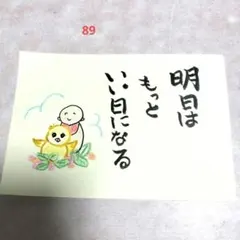 89
明日は
もっと
いい日になる